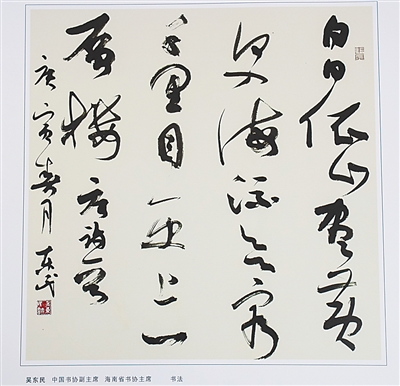 白日依山盡黄
河入海流欲窮
千里目更上一
層樓 唐诗一首
庚寅春月 东民
吴东民 中国书协副主席 海南省书协主席 书法